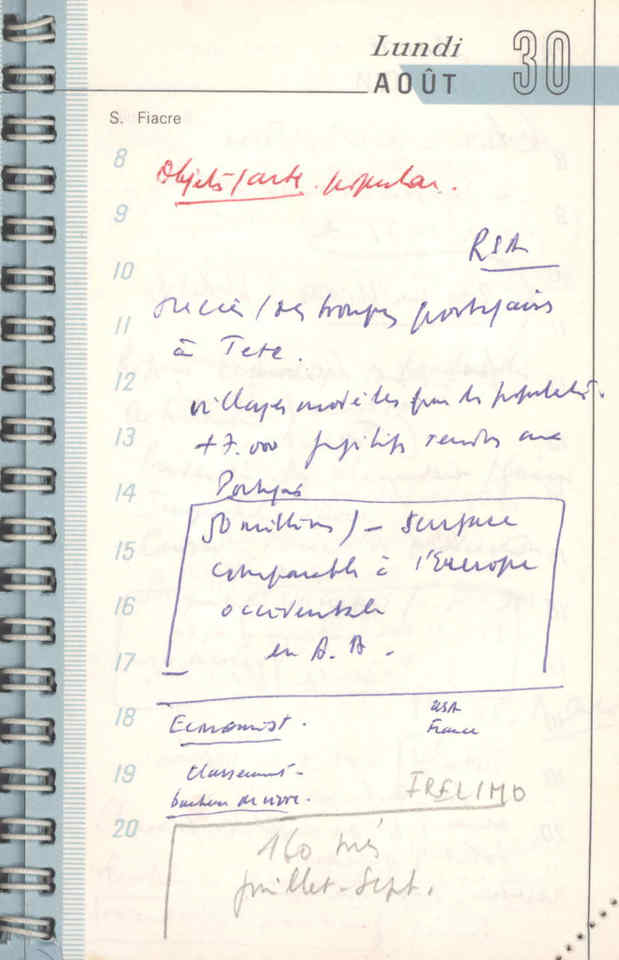 Lundi 30
AOÛT
S. Fiacre
8
Objets / arte popular.
9
RSA
10
succès / des troupes portugaises
11
à Tete.
12
villages modèles pour les populat.
13
+ 7.000 fugitifs rendus aux
14
Portugais
50 millions) - Surface
15
comparable à l'Europe
16
occidentale
en A. A -
17
18
Economist. USA
France
19
Classement -
FRELIMO
20
160 tués
juillet - Sept.